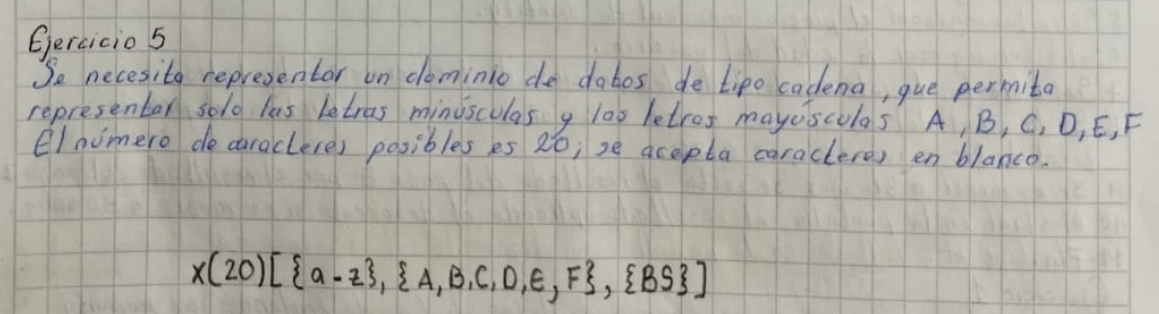 Ejercicio 5
Se necesita representar un dominio de datos de tipo cadena, que permita
representar solo las letras minúsculas y las letras mayúsculas A, B, C, D, E, F
El número de caracteres posibles es 20, se acepta caracteres en blanco.
X(20)[{a-z}, {A,B,C,D,E,F}, {BS}]